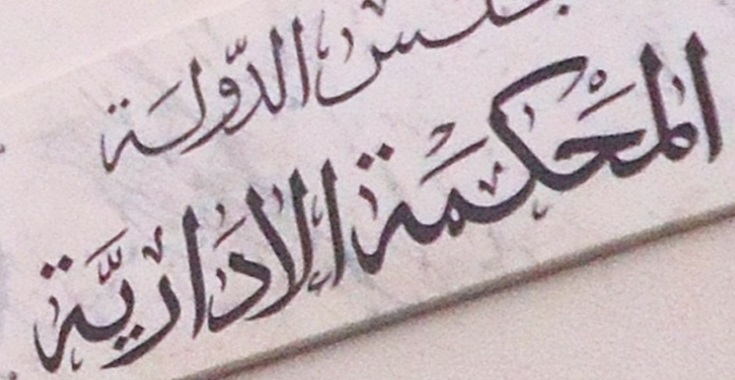 مجلس الدّولة
المحْكَمَة الادَاريَّة